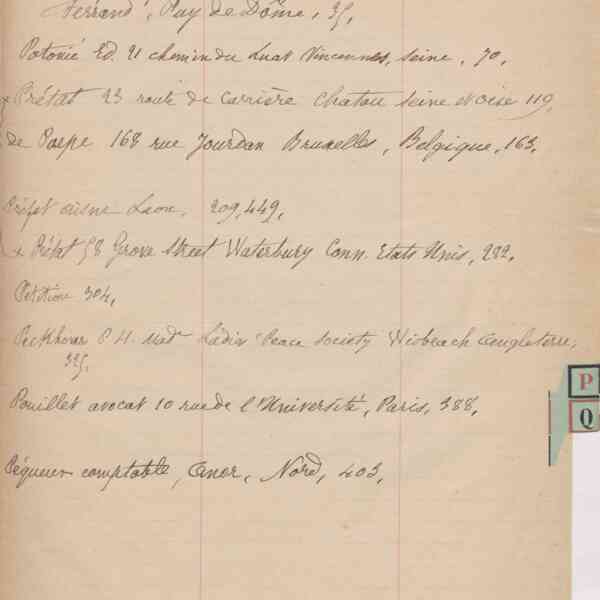 Ferrand, Puy de Dôme, 35,
Potonié Ed. 21 chemin du Luat Vincennes, seine, 70,
x Prétat 23 route de Carrière Chatou seine et oise 119,
de Paepe 168 rue Jourdan Bruxelles, Belgique, 163,
Préfet aisne Laon, 209, 449,
x Prétat 58 Grove Street Waterbury Conn. Etats Unis, 282,
Pétition 304,
Peckhover P. H. Mad Ladie's Peace Society Wisbeach Angleterre,
325,
Pouillet avocat 10 rue de l'Université, Paris, 388,
Péqueur comptable, Anor, Nord, 403,
P
Q